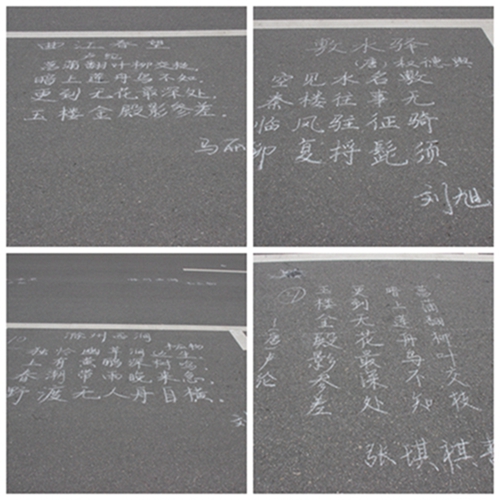 曲江春望
卢纶
菖蒲翻叶柳交枝
暗上莲舟鸟不知.
更到无花最深处.
玉楼金殿影参差.
马丽
敷水驿
(唐)权德舆
空见水名敷
秦楼往事无
临风驻征骑
复捋髭须
刘旭
滁州西涧
独怜幽草涧边生
上有黄鹂深树鸣
春潮带雨晚来急.
野渡无人舟自横.
菖蒲翻柳叶交枝
暗上莲舟鸟不知
更到无花最深处
玉楼金殿影参差
唐卢纶
张琪祺